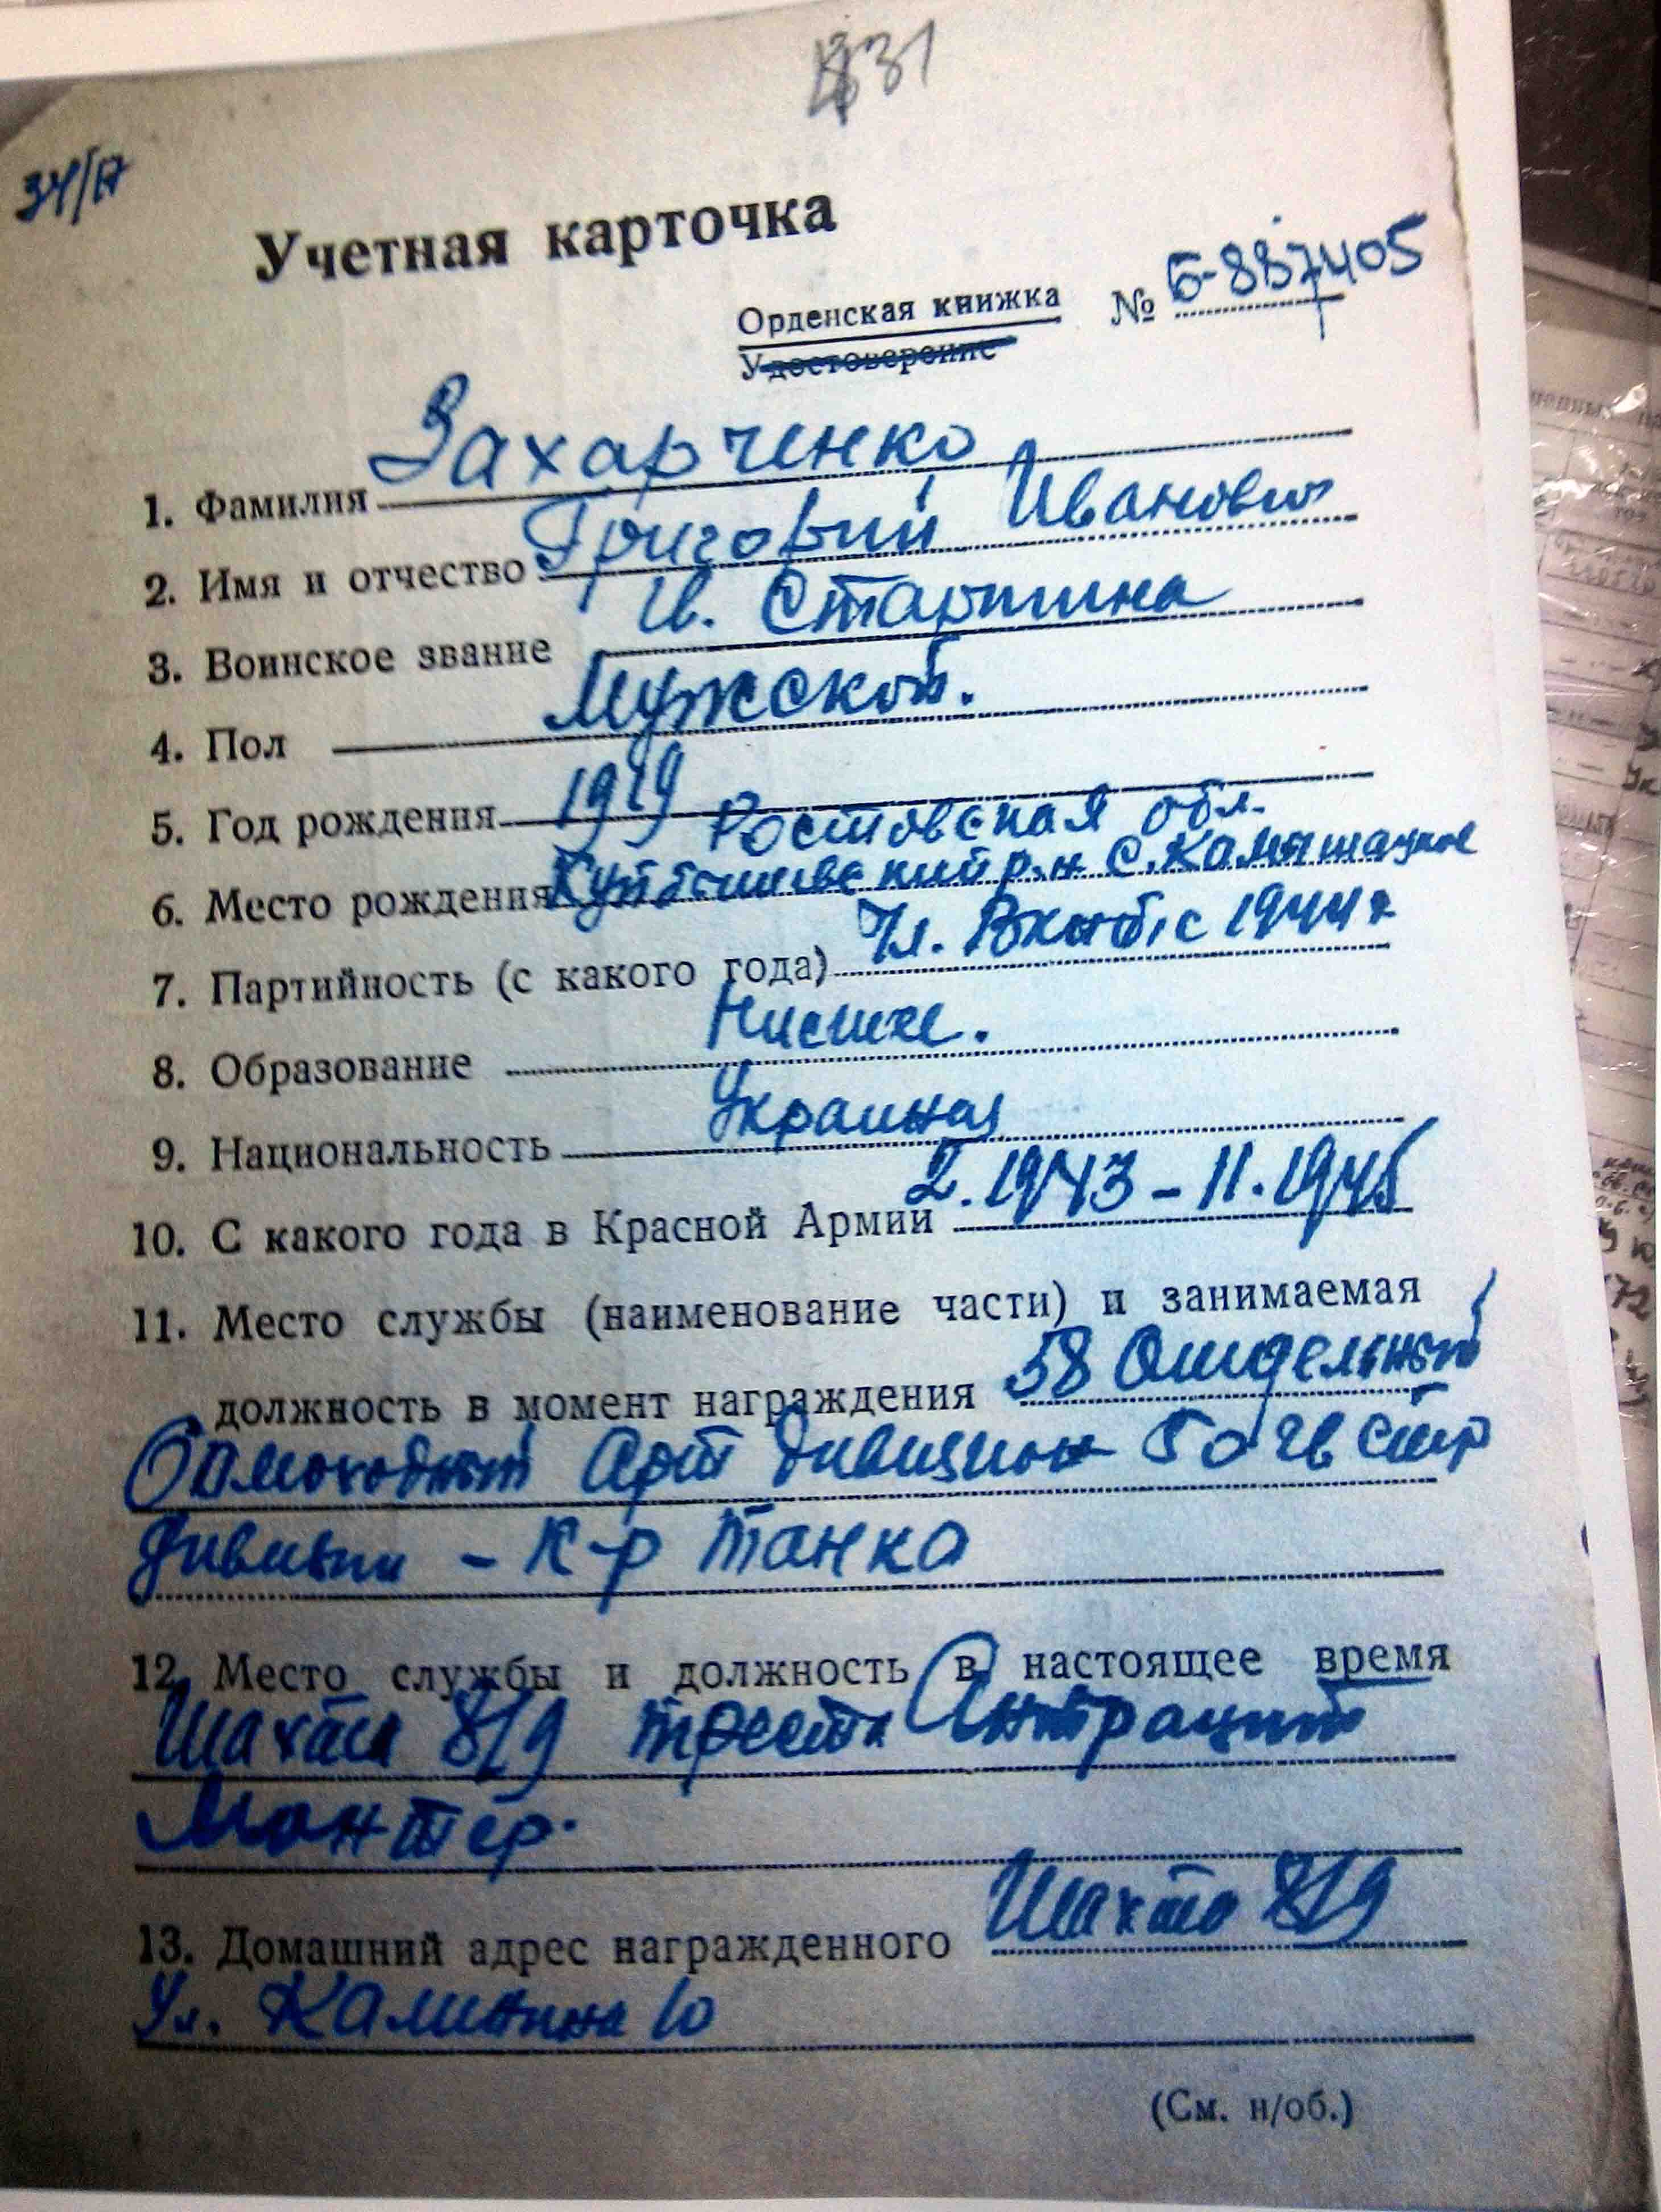 31
34/А
Учетная карточка
Орденская книжка № Б-887405
Удостоверение
1. Фамилия Захарченко
2. Имя и отчество Григорий Иванович
3. Воинское звание Старшина
4. Пол Мужской.
5. Год рождения 1919 Ростовская обл.
6. Место рождения Куйбышевский р-н с.
7. Партийность (с какого года) Чл. Вкпб, с 1944 г
8. Образование Нисшее.
9. Национальность
10. С какого года в Красной Армии 2.1943 – 11.1945
11. Место службы (наименование части) и занимаемая
должность в момент награждения 58 Отдельный
Самоходный Арт дивизион 50 гв стр
дивизии – К-р танка
12. Место службы и должность в настоящее время
Шахта 8/9 треста Антрацит
Монтер.
13. Домашний адрес награжденного Шахта 8/9
Ул. Калинина 10
(См. н/об.)